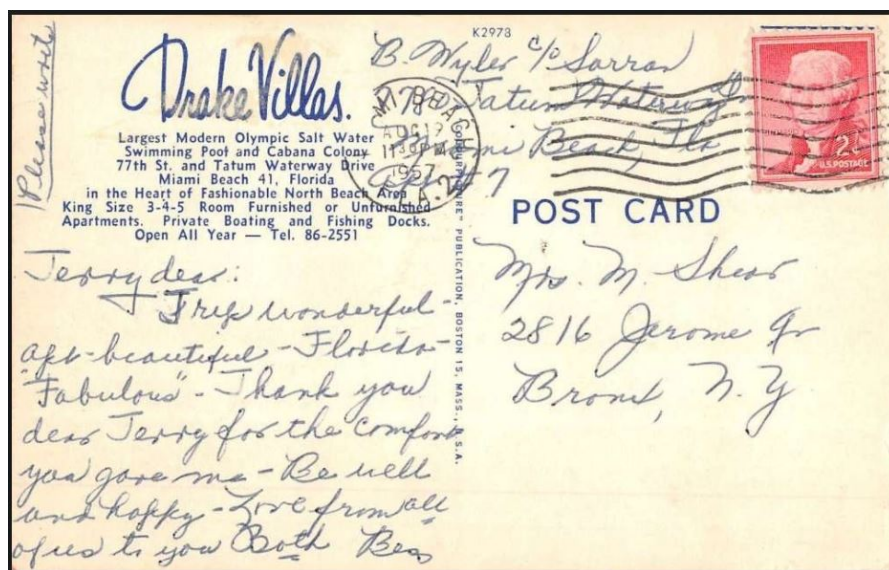 Please write
Drake Villas.
Largest Modern Olympic Salt Water
Swimming Pool and Cabana Colony
77th St. and Tatum Waterway Drive
Miami Beach 41, Florida
in the Heart of Fashionable North Beach Area
King Size 3-4-5 Room Furnished or Unfurnished
Apartments. Private Boating and Fishing Docks.
Open All Year — Tel. 86-2551
Jerry dear:
Trip wonderful-
apt-beautiful-Florida-
"Fabulous"-Thank you
dear Jerry for the comfort
you gave me-Be well
and happy-Love from all
of us to you Both Bess
K2973
B. Wyler c/o Sorran
Tatum Waterway
Beach, Fla
7
BEACH
AUG 19
1130 PM
1957
FLA. 2
PUBLICATION, BOSTON 15, MASS., U.S.A.
2¢
U.S. POSTAGE
POST CARD
Mrs. M. Shear
2816 Jerome
Bronx, N.Y